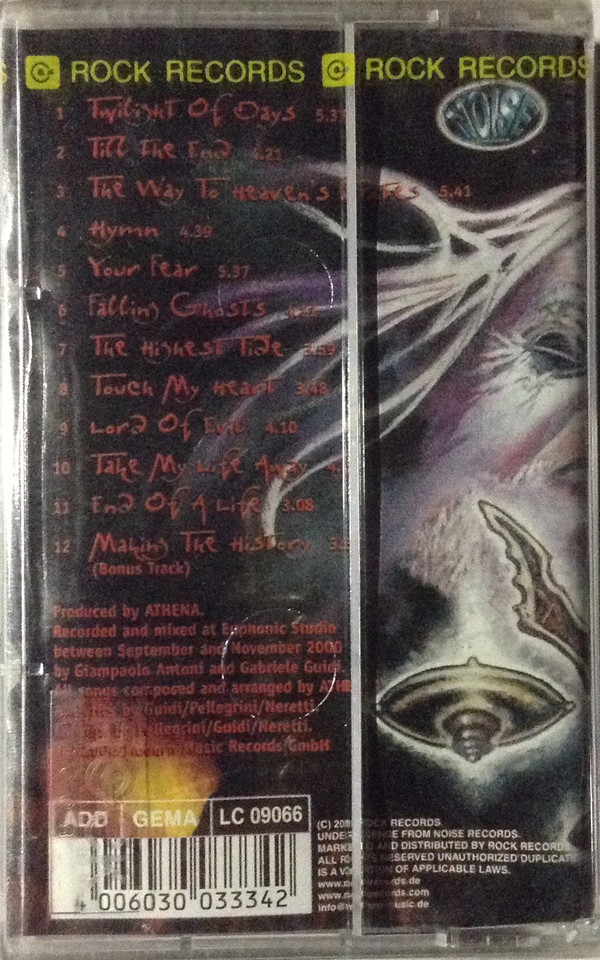 ROCK RECORDS ROCK RECORDS
NOISE
1 Twilight Of Days 5.3
2 Till The End 4.21
3 The Way To Heaven's Gates 5.41
4 Hymn 4.39
5 Your Fear 5.37
6 Falling Ghosts
7 The Highest Tide 3.59
8 Touch My Heart 3.48
9 Lord Of Evil 4.10
10 Take My Life Away 4.
11 End Of A Life 3.08
12 Making The History 3.
(Bonus Track)
Produced by ATHENA.
Recorded and mixed at Euphonic Studio
between September and November 2000
by Giampaolo Antoni and Gabriele Guidi.
All songs composed and arranged by ATHE
by Guidi/Pellegrini/Neretti.
Pellegrini/Guidi/Neretti.
Music Records GmbH
ADD GEMA LC 09066
4 006030 033342
(C) 200 ROCK RECORDS.
UNDER LICENCE FROM NOISE RECORDS.
MARKETED AND DISTRIBUTED BY ROCK RECORDS
ALL RIGHTS RESERVED UNAUTHORIZED DUPLICAT
IS A VIOLATION OF APPLICABLE LAWS.